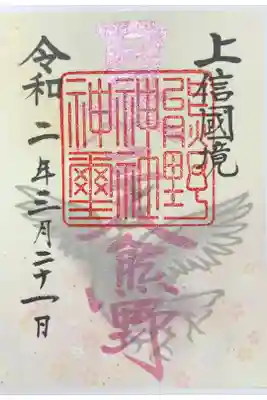 上信國境
熊野
神社
神璽
熊野
令和二年三月二十一日